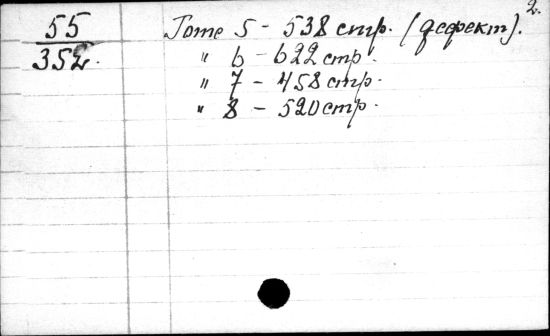 2.
55
352.
Tome 5 - 538 стр. (дефект).
" 6 - 622 стр.
" 7 - 458 стр.
" 8 - 520 стр.